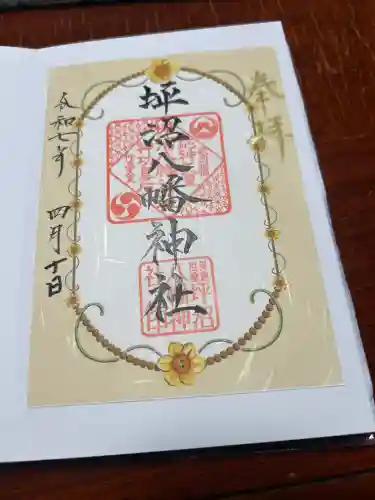 奉拝
坪沼八幡神社
令和七年 四月十日